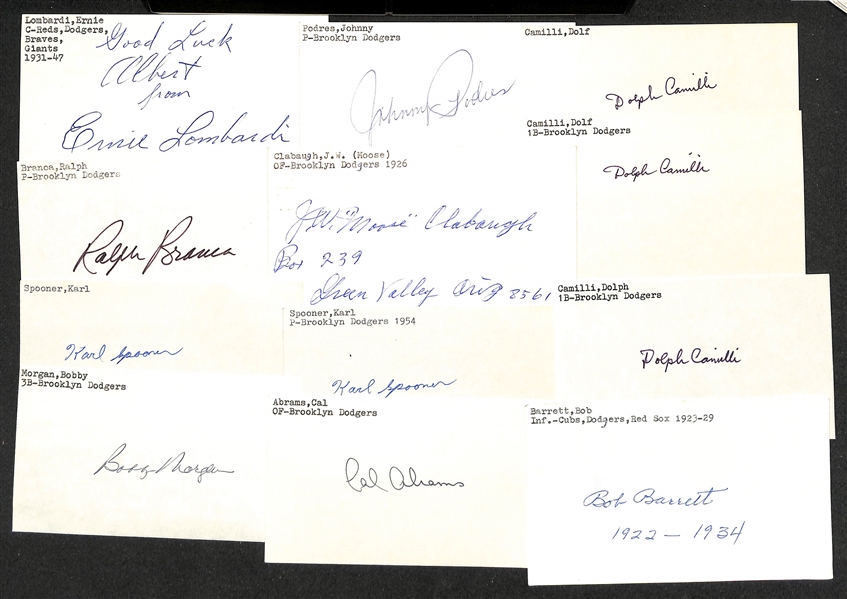 Lombardi,Ernie
C-Reds,Dodgers,
Braves,
Giants
1931-47
Good Luck
Albert
from
Ernie Lombardi
Podres,Johnny
P-Brooklyn Dodgers
Johnny Podres
Camilli,Dolf
Dolph Camilli
Camilli,Dolf
1B-Brooklyn Dodgers
Dolph Camilli
Branca,Ralph
P-Brooklyn Dodgers
Ralph Branca
Clabaugh,J.W. (Moose)
OF-Brooklyn Dodgers 1926
J.W. "Moose" Clabaugh
Box 239
Green Valley Ariz 8561
Camilli,Dolph
1B-Brooklyn Dodgers
Dolph Camilli
Spooner,Karl
Karl Spooner
Spooner,Karl
P-Brooklyn Dodgers 1954
Karl Spooner
Morgan,Bobby
3B-Brooklyn Dodgers
Bobby Morgan
Abrams,Cal
OF-Brooklyn Dodgers
Cal Abrams
Barrett,Bob
Inf.-Cubs,Dodgers,Red Sox 1923-29
Bob Barrett
1922 — 1934